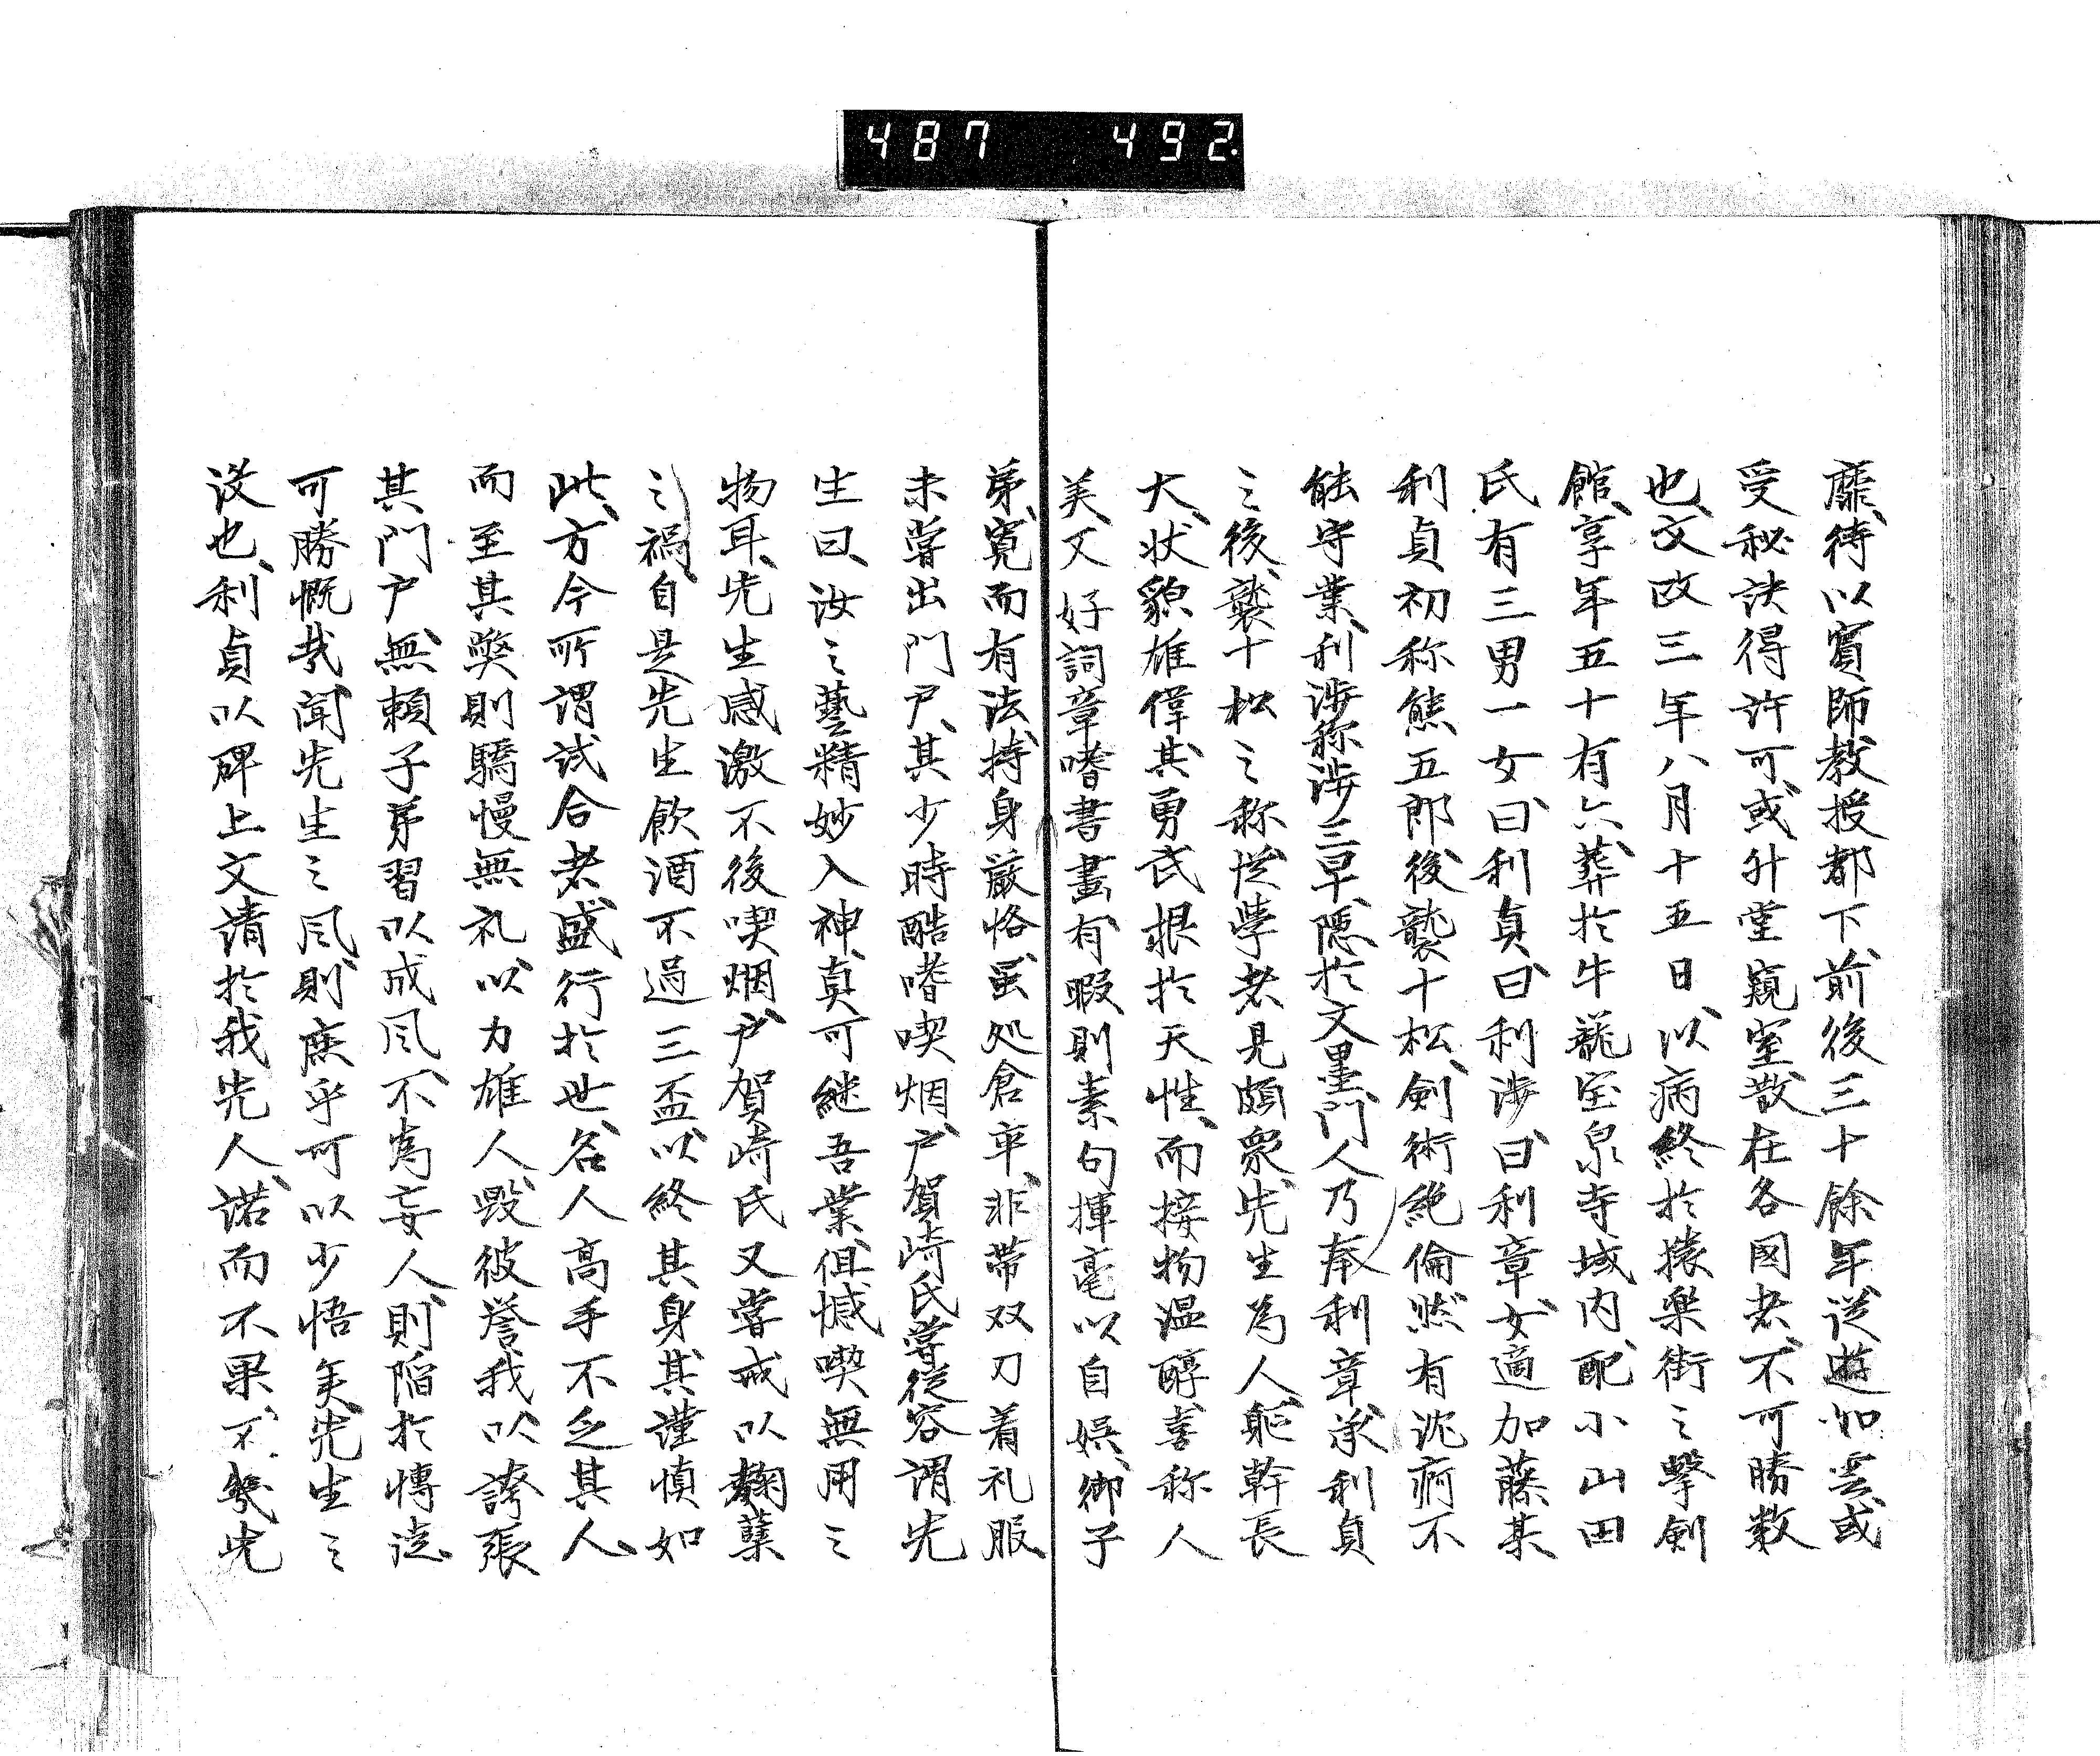 487 492
靡、待以賓師、教授都下、前後三十餘年、従遊如雲、或
受秘訣得許可、或升堂窺室、散在各國者、不可勝数
也、文政三年八月十五日、以病終於猿楽街之撃剣
館、享年五十有六、葬於牛籠宝泉寺域内、配小山田
氏有三男一女、曰利貞、曰利渉、曰利章、女適加藤某
利貞初称熊五郎、後襲十松、剣術絶倫、然有沈痾不
能守業、利渉称渉三早、隠於文墨、門人乃奉利章、承利貞
之後、襲十松之称、従学者見頗衆、先生為人、軀幹長
大、状貌雄偉、其勇武根於天性、而接物温醇、喜称人
美、又好詞章、嗜書畫、有暇則索句揮毫以自娯、御子
弟、寛而有法、持身厳恪、虽処倉卒、非帯双刀着礼服、
未嘗出門戸、其少時酷嗜喫烟、戸賀崎氏嘗従容謂先
生曰、汝之藝精妙入神、真可継吾業、但憾喫無用之
物耳、先生感激不後喫烟、戸賀崎氏又嘗戒以麴蘖
之禍、自是先生飲酒不過三盃、以終其身、其謹慎如
此、方今所謂試合者、盛行於世、名人高手不乏其人、
而至其獘則驕慢無礼、以力雄人、毀彼誉我、以誇張
其門戸、無頼子弟習以成風、不為妄人、則陥於愽徒
可勝慨哉、聞先生之風、則庶乎可以少悟矣、先生之
没也、利貞以碑上文請於我先人、諾而不果、不幾先